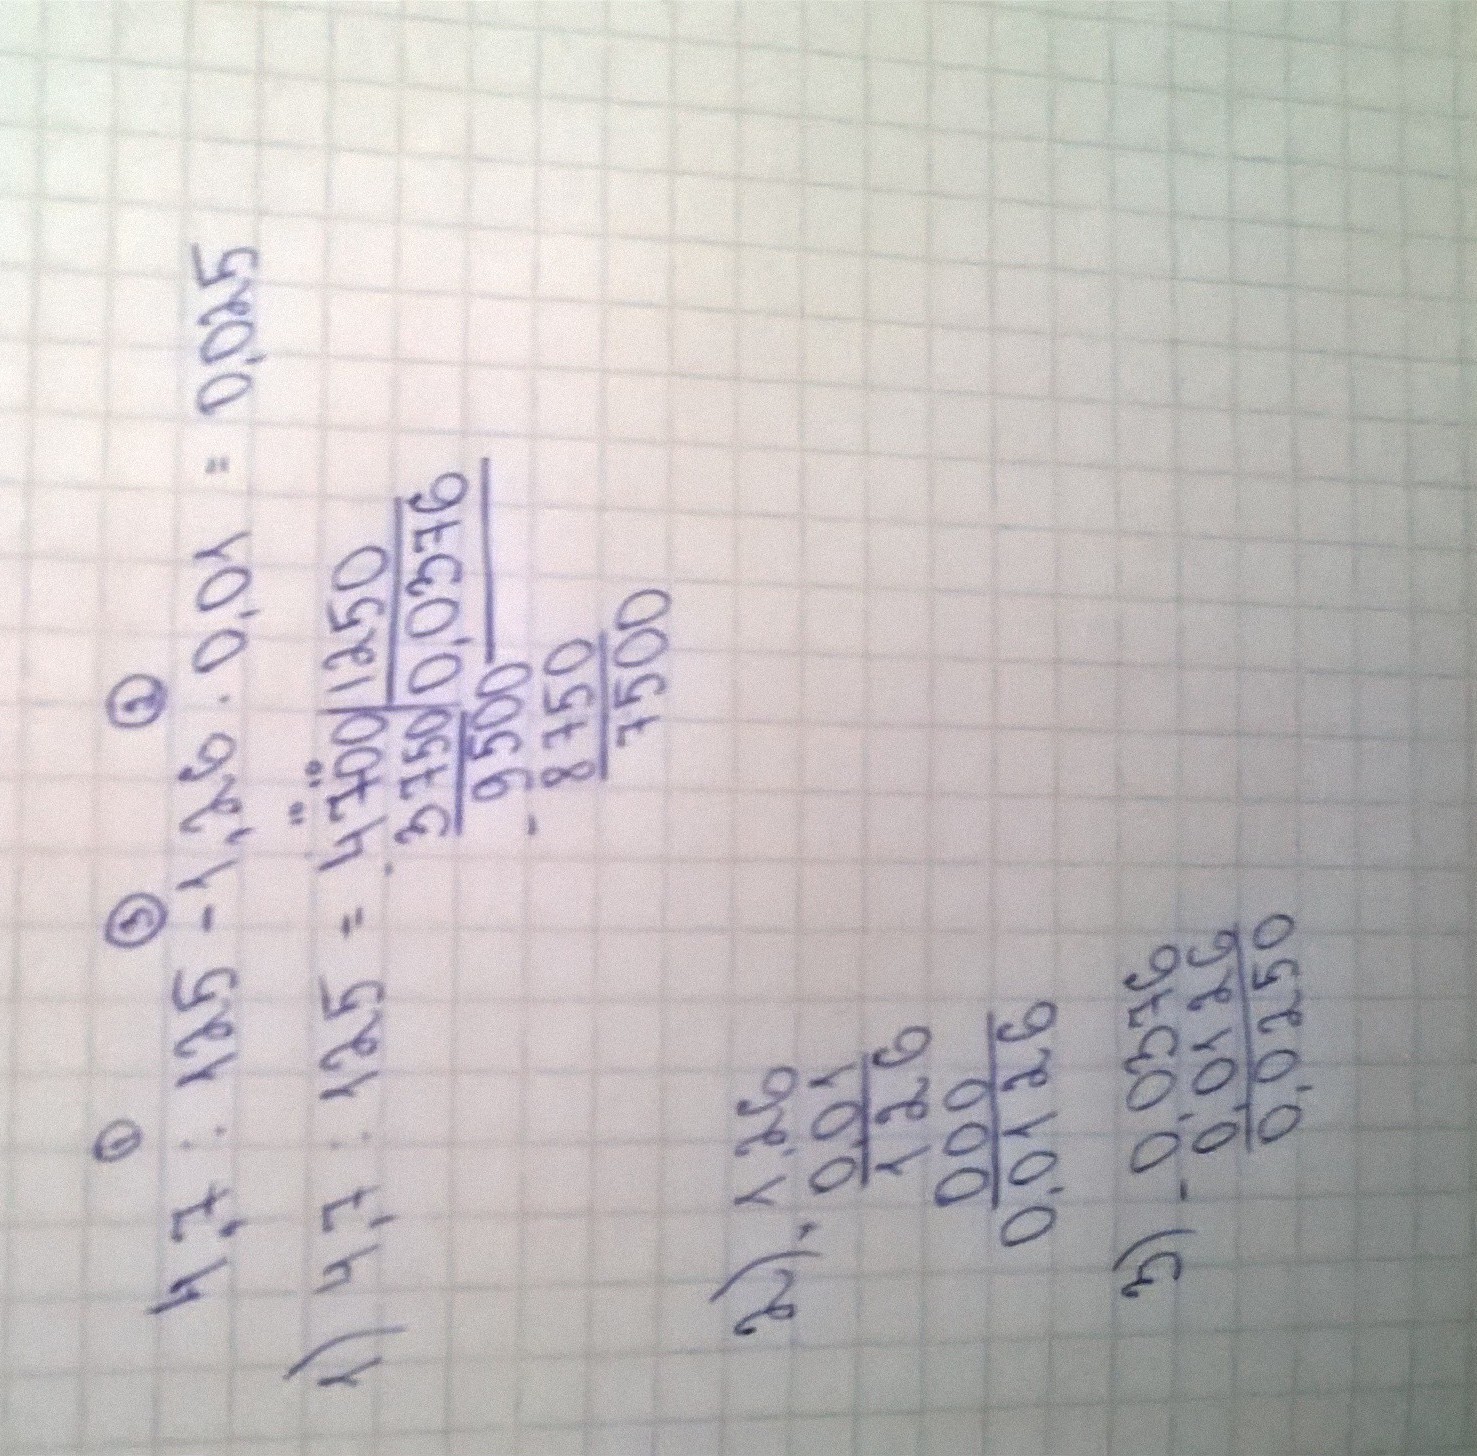 ① ③ ②
4,7 : 125 - 1,26 · 0,01 = 0,025
1) 4,7 : 125 = 4700 | 1250
3750 | 0,0376
- 9500
8750
7500
2) × 1,26
0,01
126
000
0,0126
3) - 0,0376
0,0126
0,0250